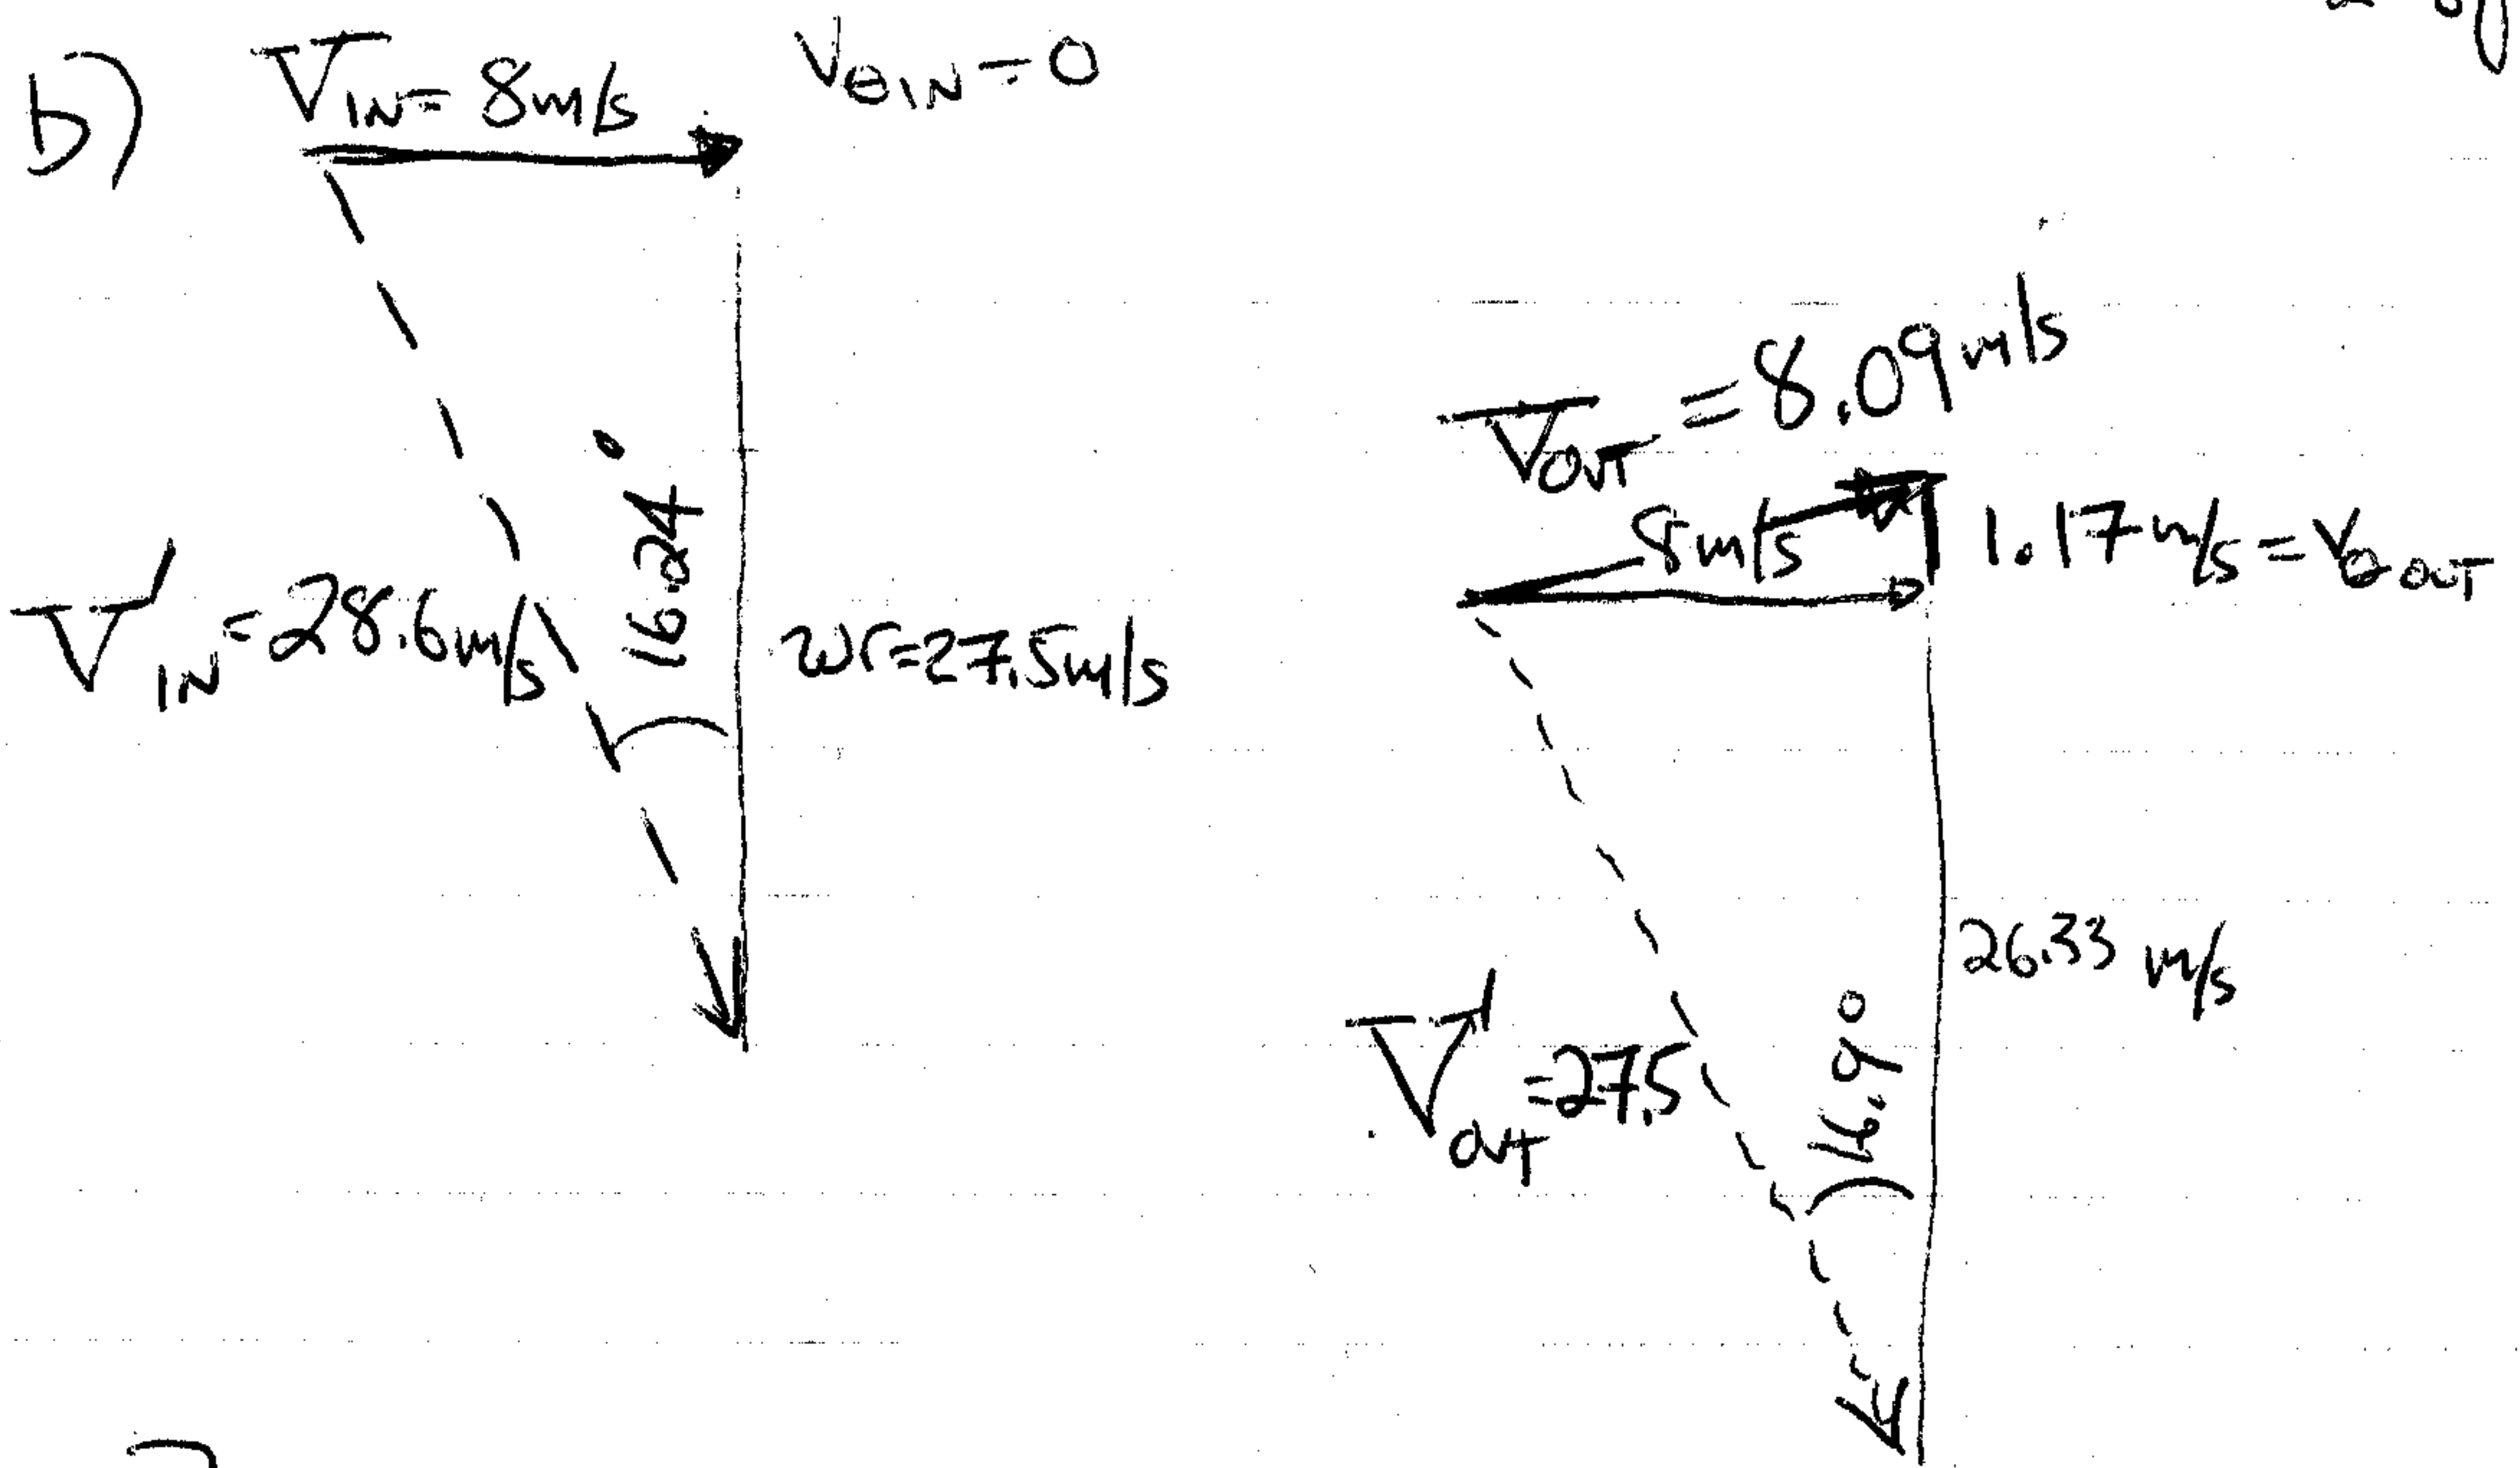 b)
V_IN = 8m/s
V_θIN = 0
V'_IN = 28.6m/s
16.24°
ωr=27.5m/s
V_OUT = 8.09m/s
8m/s
1.17m/s = V_θOUT
26.33 m/s
V'_OUT = 27.5
16.9°